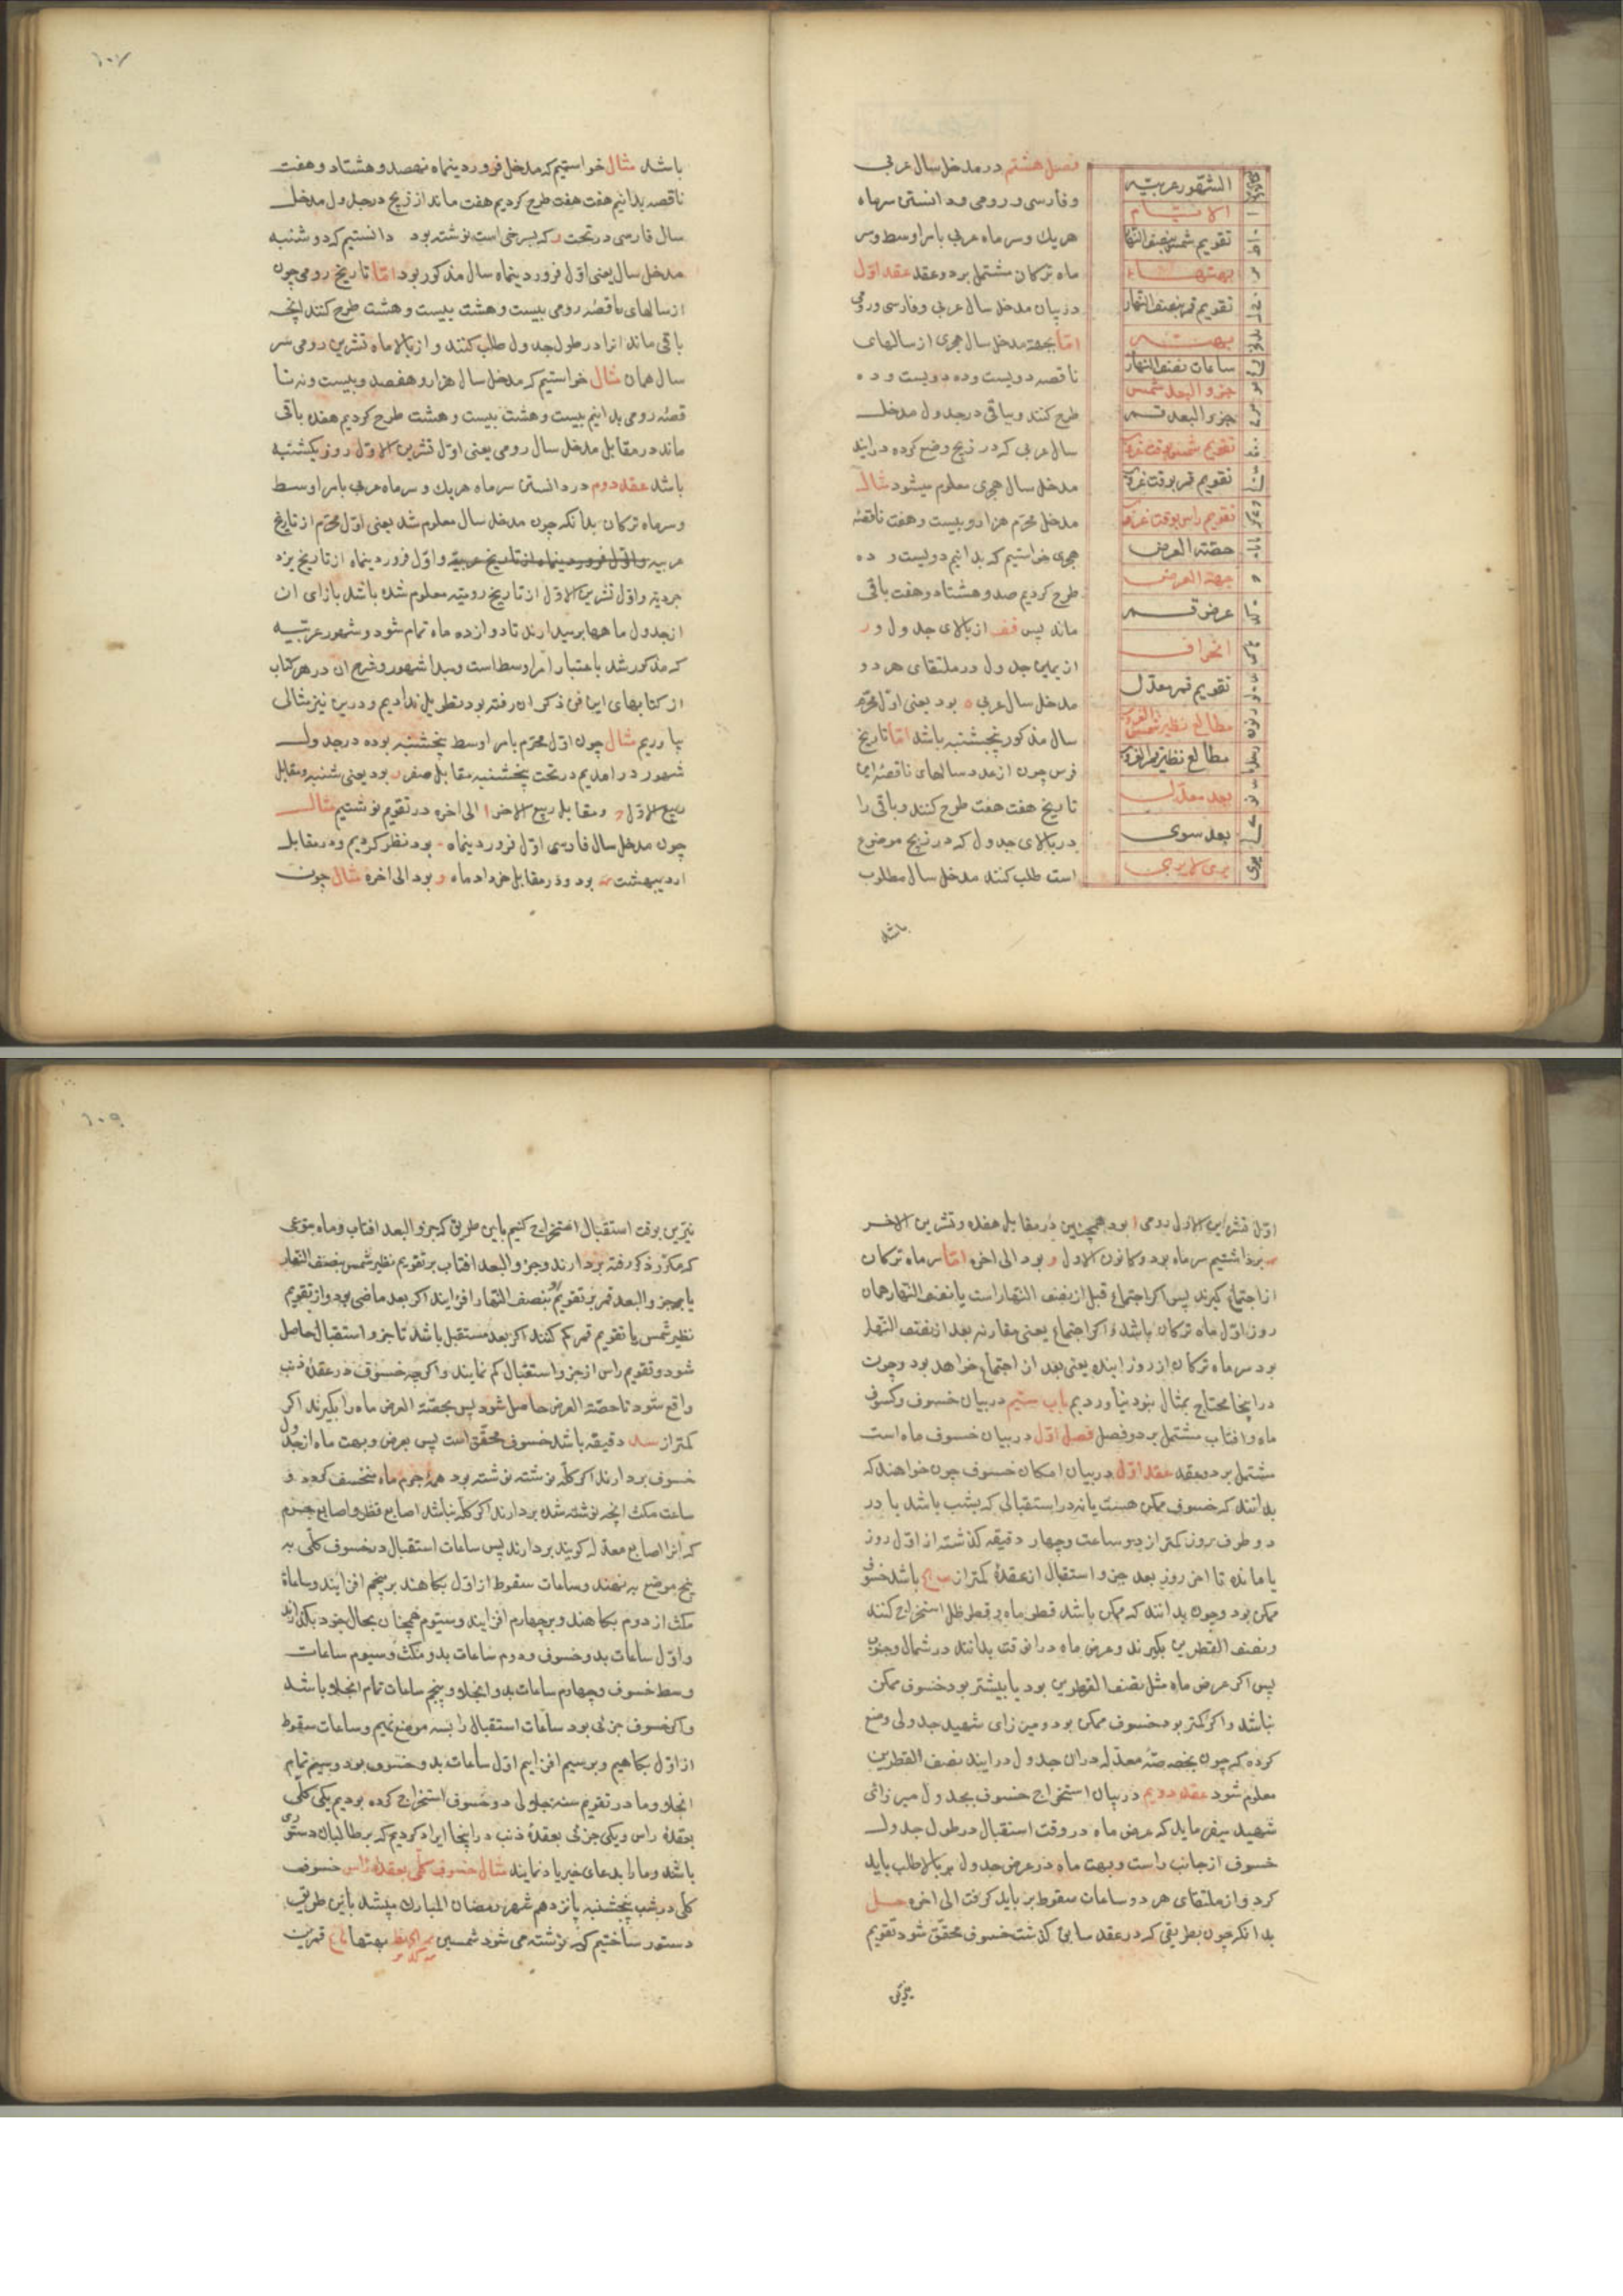 فصل هشتم در مدخل سال عربی
و فارسی و رومی و دانستن سرماه
هریك و سر ماه عربی بامر اوسط و سر
ماه ترکان مشتمل بر دو عقد عقد اوّل
در بیان مدخل سال عربی و فارسی و رومی
امّا بجهة مدخل سال هجری از سالهای
ناقصه دویست و ده دویست و ده
طرح کنند و باقی در جدول مدخل
سال عربی که در زیج وضع کرده درایند
مدخل سال هجری معلوم میشود مثال
مدخل محرّم هزار و بیست و هفت ناقصهٔ
هجری خواستیم که بدانیم دویست و ده
طرح کردیم صد و هشتاد و هفت باقی
ماند پس قفز از بالای جدول و ر
از یمین جدول در ملتقای هر دو
مدخل سال عربی ه بود یعنی اوّل محرّم
سال مذکور پنجشنبه باشد امّا تاریخ
فرس چون از عدد سالهای ناقصهٔ این
تاریخ هفت هفت طرح کنند و باقی را
در بالای جدول که در زیج موضوع
است طلب کنند مدخل سال مطلوب
باشد
الشهور عربیّه
الایّام
تقویم شمس بنصف النّهار
بهتها
تقویم قمر بنصف النّهار
بهته
ساعات نصف النّهار
جزو البعد شمس
جزو البعد قمر
تقویم شمس بوقت غروب
تقویم قمر بوقت غروب
تقویم راس بوقت غروب
حصّته العرض
جهة العرض
عرض قمر
انحراف
تقویم قمر معدّل
مطالع نظیر شمس الغروب
مطالع نظیر قمر الغروب
بعد معدّل
بعد سوی
۱۰۷
باشد مثال خواستیم که مدخل فروردینماه نهصد و هشتاد و هفت
ناقصه بدانیم هفت هفت طرح کردیم هفت ماند از زیج در جدول مدخل
سال فارسی در تحت ر که بسرخی است نوشته بود دانستیم که دوشنبه
مدخل سال یعنی اوّل فروردینماه سال مذکور بود امّا تاریخ رومی چون
از سالهای ناقصهٔ رومی بیست و هشت بیست و هشت طرح کنند انچه
باقی ماند انرا در طول جدول طلب کنند و از بالا ماه تشرین رومی سر
سال همان مثال خواستیم که مدخل سال هزار و هفصد و بیست و نه نا
قصهٔ رومی بدانیم بیست و هشت بیست و هشت طرح کردیم هفده باقی
ماند در مقابل مدخل سال رومی یعنی اوّل تشرین الاوّل روز یکشنبه
باشد عقد دوم در دانستن سر ماه هریك و سر ماه عربی بامر اوسط
و سر ماه ترکان بدانکه چون مدخل سال معلوم شد یعنی اوّل محرّم از تاریخ
عربیه و اوّل فروردینماه از تاریخ عربیة و اوّل فروردینماه از تاریخ یزد
جردیّه و اوّل تشرین الاوّل از تاریخ رومیّه معلوم شده باشد بازای ان
از جدول ماهها بر میدارند تا دوازده ماه تمام شود و شهور عربیّه
که مذکور شد باعتبار امر اوسط است و مبدا شهور و شرح ان در هر کتاب
از کتابهای این فن ذکر ان رفته بود تطویل ندادیم و درین نیز مثالی
بیاوریم مثال چون اوّل محرّم بامر اوسط پنجشنبه بوده در جدول
شهور درامدیم در تحت پنجشنبه مقابل صفر ر بود یعنی شنبه و مقابل
ربیع الاوّل و مقابل ربیع الاخر ا الی اخره در تقویم نوشتیم مثال
چون مدخل سال فارسی اوّل فروردینماه بود نظر کردیم و در مقابل
اردیبهشت بود و در مقابل خرداد ماه و بود الی اخره مثال چون
اوّل تشرین الاوّل رومی ا بود همچنین در مقابل هفده و تشرین الاخر
برداشتیم سر ماه بود و کانون الاول و بود الی اخره امّا سر ماه ترکان
از اجتماع گیرند پس اکر اجتماع قبل از نصف النّهار است یا نصف النّهار همان
روز اوّل ماه ترکان باشد و اکر اجتماع یعنی مقارنه بعد از نصف النّهار
بود سر ماه ترکان از روز اینده یعنی بعد از اجتماع خواهد بود و چون
در اینجا محتاج بمثال نبود نیاوردیم باب سیّم در بیان خسوف و کسوف
ماه و افتاب مشتمل بر دو فصل فصل اوّل در بیان خسوف ماه است
مشتمل بر دو عقد عقد اوّل در بیان امکان خسوف چون خواهند که
بدانند که خسوف ممکن هست یا نه در استقبالی که بشب باشد یا در
دو طرف روز کمتر از دو ساعت و چهار دقیقه کذشته از اوّل روز
یا مانده تا اخر روز بعد جزو استقبال از عقدهٔ کمتر از باشد خسوف
ممکن بود و چون بدانند که ممکن باشد قطر ماه و قطر ظل استخراج کنند
و نصف القطرین بگیرند و عرض ماه در انوقت بدانند در شمال و جنوب
پس اکر عرض ماه مثل نصف القطرین بود یا بیشتر بود خسوف ممکن
نباشد و اکر کمتر بود خسوف ممکن بود و میرزای شهید جدولی وضع
کرده که چون بخاصهٔ معدّله در ان جدول درایند نصف القطرین
معلوم شود عقد دویم در بیان استخراج خسوف بجدول میرزای
شهید میفرماید که عرض ماه در وقت استقبال در طول جدول
خسوف از جانب راست و بهت ماه در عرض جدول بر بالا طلب باید
کرد و از ملتقای هر دو ساعات سقوط بر باید کرفت الی اخره
بدانکه چون بطریقی که در عقد سابق کذشت خسوف محقّق شود تقویم
نیّرین
۱۰۹
نیّرین بوقت استقبال استخراج کنیم باین طریق که جزو البعد افتاب و ماه بنوعی
که مکرّر ذکر رفته بردارند و جزو البعد افتاب بر تقویم نظیر شمس بنصف النّهار
یا جزو البعد قمر بر تقویم او بنصف النّهار افزایند اکر بعد ماضی بود و از تقویم
نظیر شمس یا تقویم قمر کم کنند اکر بعد مستقبل باشد تا جزو استقبال حاصل
شود و تقویم راس از جزو استقبال کم نمایند و اکرچه خسوف در عقدهٔ ذنب
واقع شود تا حصّة العرض حاصل شود پس بحصّة العرض ماه را بگیرند اکر
کمتر از دقیقه باشد خسوف محقّق است پس بعرض و بهت ماه از جدول
خسوف بردارند اکر کلّه نوشته نوشته بود همهٔ جرم ماه منخسف کردد و
ساعت مکث انچه نوشته شده بردارند اکر کلّه نباشد اصابع قطر و اصابع جرم
که انرا اصابع معدّله کویند بردارند پس ساعات استقبال در خسوف کلّی به
پنج موضع بنهند و ساعات سقوط از اوّل بکاهند بر پنجم افزایند و ساعاة
مکث از دوم بکاهند و بر چهارم افزایند و سیّوم همچنان بحال خود بکذارند
و اوّل ساعات بدو خسوف و دوم ساعات بدو مکث و سیوم ساعات
وسط خسوف و چهارم ساعات بدو انجلا و پنجم ساعات تمام انجلا باشد
و اکر خسوف جزئی بود ساعات استقبال را بسه موضع نهیم و ساعات سقوط
از اوّل بکاهیم و بر سیم افزایم اوّل ساعات بدو خسوف بود و سیم تمام
انجلا و ما در تقویم سنه جلولی دو خسوف استخراج کرده بودیم یکی کلّی
بعقدهٔ راس و یکی جزئی بعقدهٔ ذنب در اینجا ایراد کردیم که بر طالبان دستوری
باشد و ما را بدعای خیر یاد نمایند مثال خسوف کلّی بعقدهٔ راس خسوف
کلّی در شب پنجشنبه پانزدهم شهر رمضان المبارك میشد باین طریق
دستور ساختیم که نوشته می شود شمسین بهتها قمرین